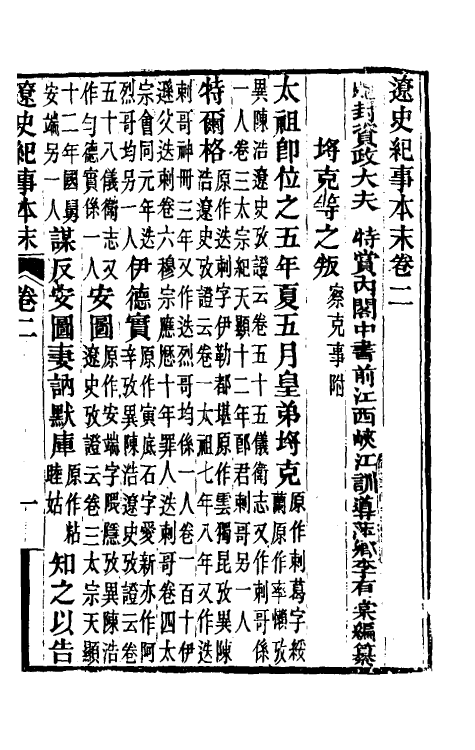 遼史紀事本末卷二
封資政大夫 特賞內閣中書前江西峽江訓導萍鄉李有棠編纂
埒克等之叛 察克事附
太祖即位之五年夏五月皇弟埒克原作剌葛字綏
蘭原作率懶攷
異陳浩遼史攷證云卷五十五儀衛志又作剌哥係
一人卷三太宗紀天顯十二年郎君剌哥另一人
特爾格原作迭剌字伊勒都堪原作雲獨昆攷異陳
浩遼史攷證云卷一太祖七年八年又作迭
剌哥神冊三年又作迭烈哥均係一人卷一百十伊
遜父迭剌卷六穆宗應歷十年罪人迭剌哥卷四太
宗會同元年迭
烈哥均另一人伊德實原作寅底石字愛新亦作阿
辛攷異陳浩遼史攷證云卷
五十八儀衛志又
作勻德實係一人安圖原作安端字隈隱攷異陳浩
遼史攷證云卷三太宗天顯
十二年國舅
安端另一人謀反安圖妻訥默庫原作粘
睦姑知之以告
遼史紀事本末 卷二 一